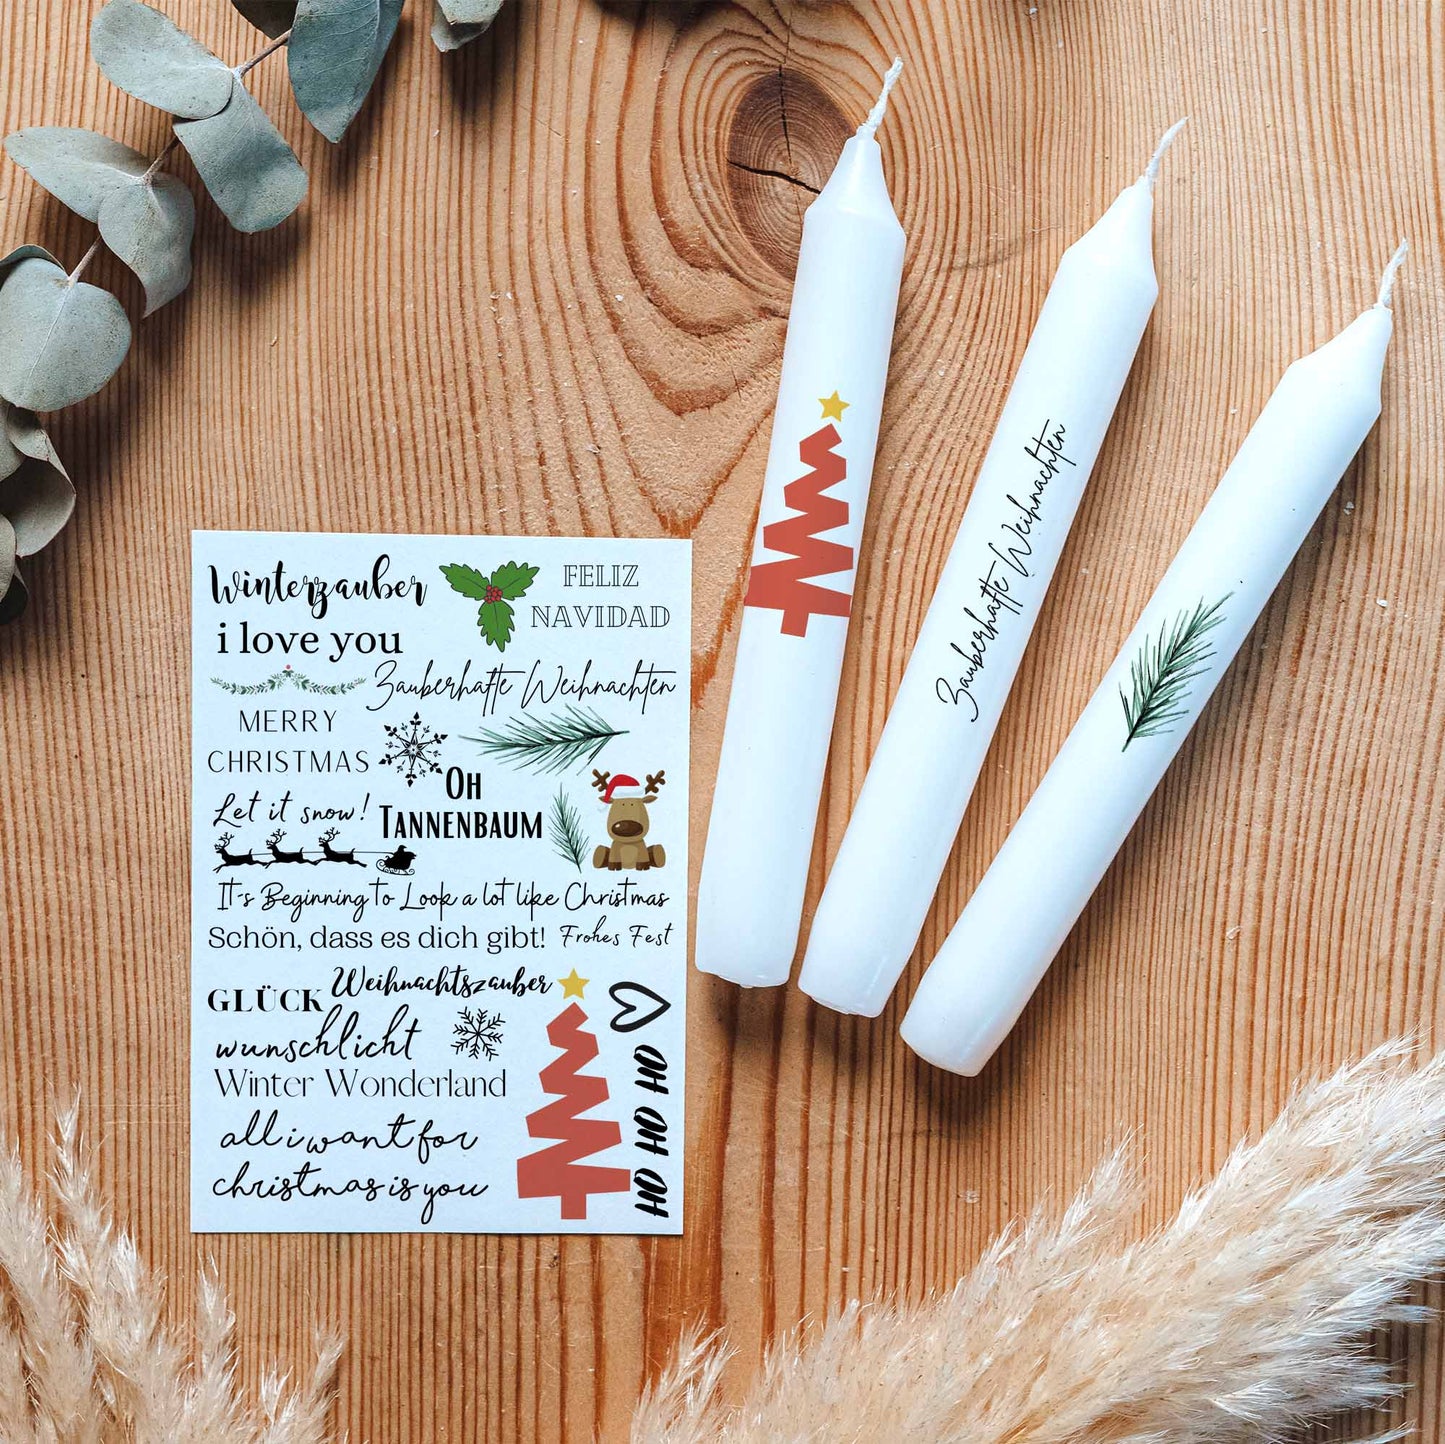 Winterzauber
FELIZ
NAVIDAD
i love you
Zauberhafte Weihnachten
MERRY
CHRISTMAS
OH
TANNENBAUM
Let it snow!
It's Beginning to Look a lot like Christmas
Schön, dass es dich gibt!
Frohes Fest
GLÜCK
Weihnachtszauber
wunschlicht
Winter Wonderland
all i want for
christmas is you
HO HO HO HO
Zauberhafte Weihnachten